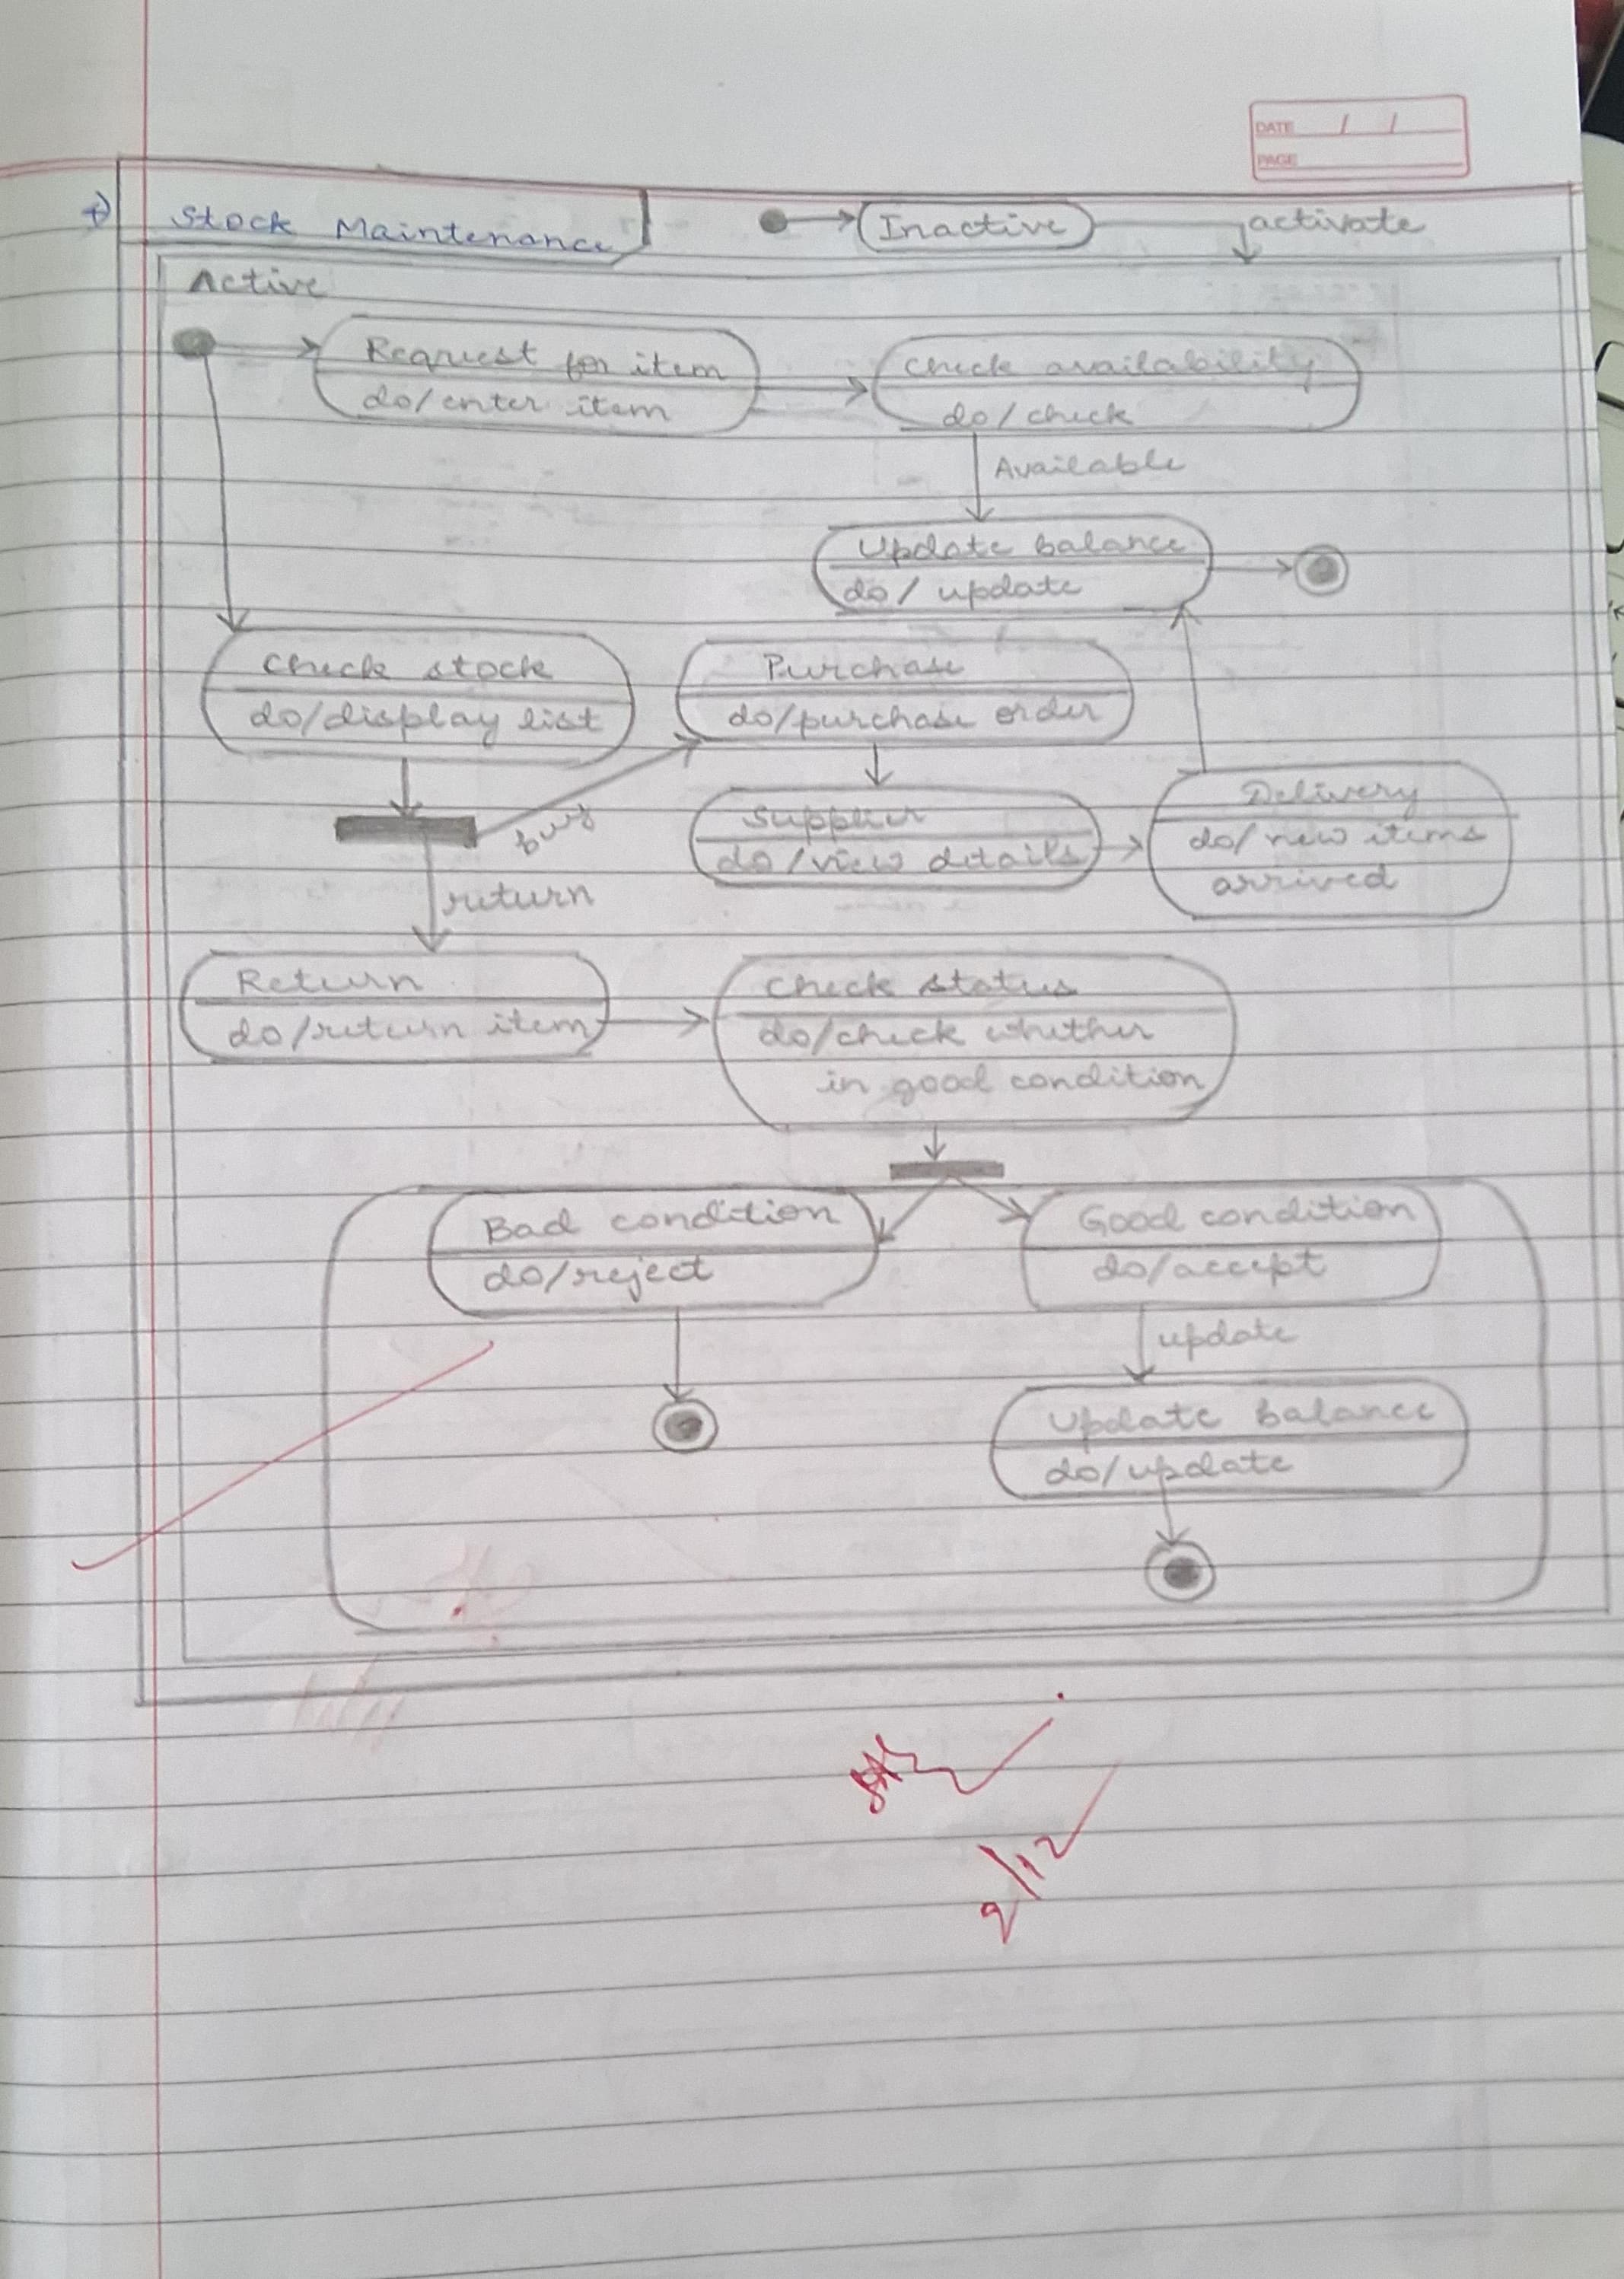 DATE / /
PAGE
Stock Maintenance
Inactive
activate
Active
Request for item
do/enter item
Check availability
do/check
Available
Update balance
do/ update
Check stock
do/display list
Purchase
do/purchase order
buy
Supplier
do/view details
Delivery
do/new items
arrived
return
Return
do/return item
Check status
do/check whether
in good condition
Bad condition
do/reject
Good condition
do/accept
update
Update balance
do/update
2/12